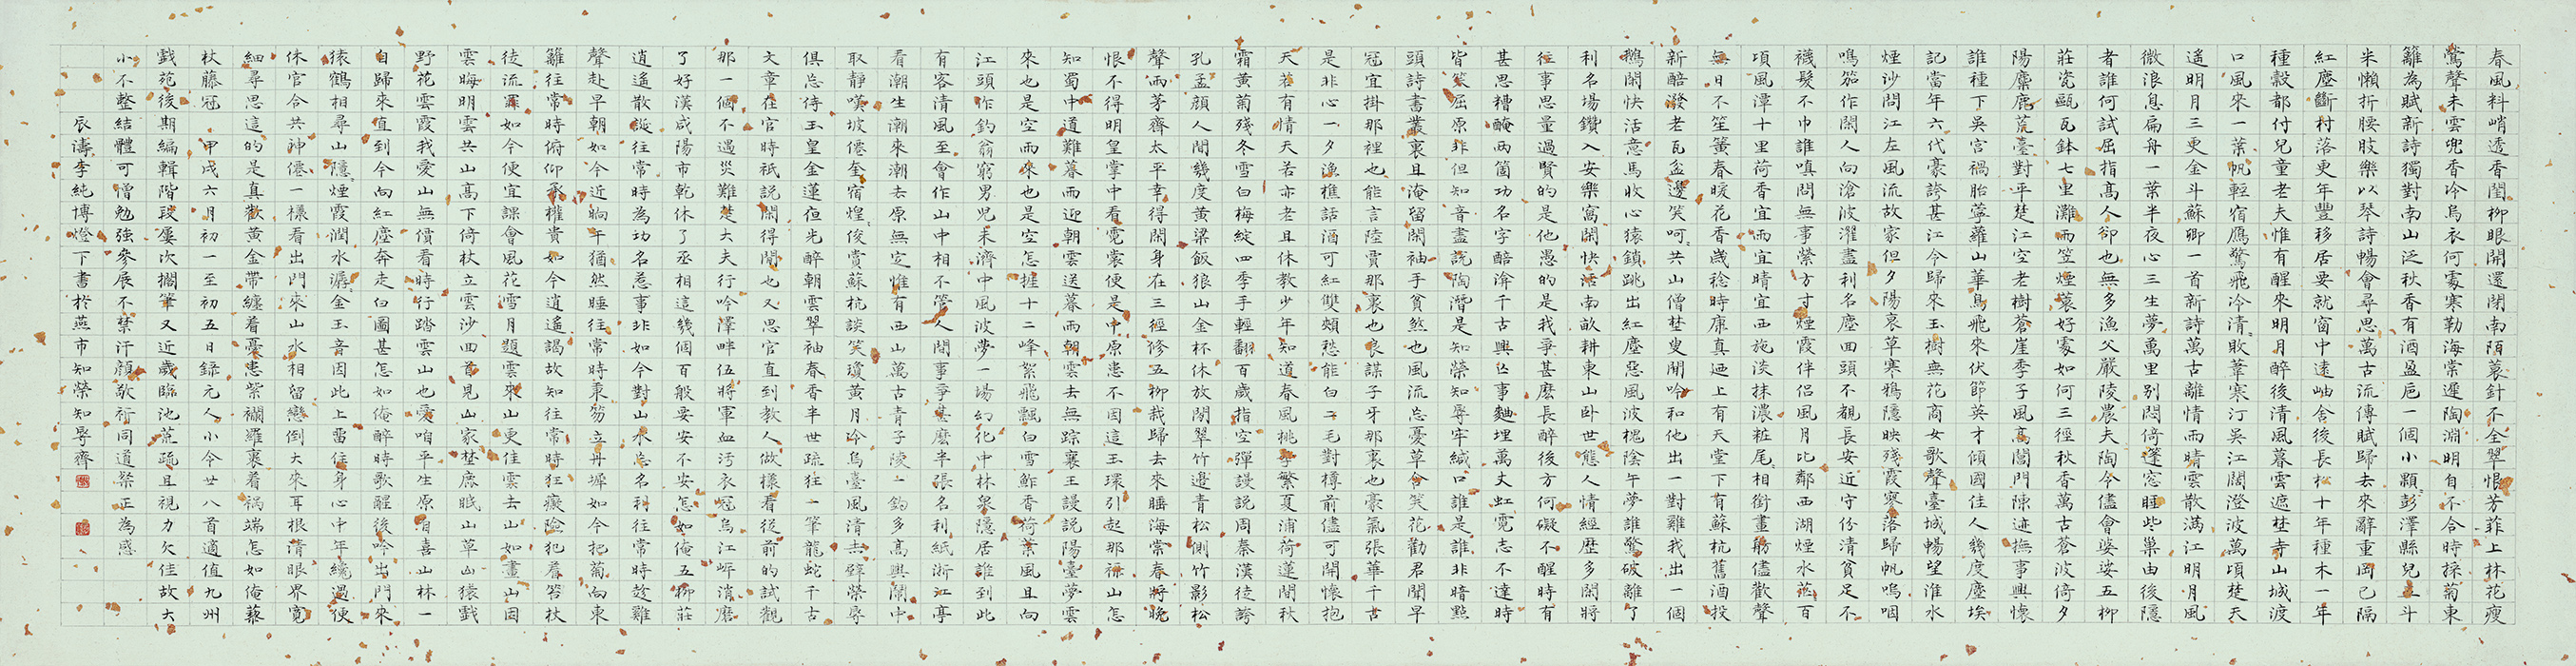 春風料峭透香閨柳眼開還閉南陌蓑針不全翠恨芳菲上林花瘦
鶯聲未雲兜香冷烏衣何處寒勒海棠遲陶淵明自不合時採菊東
籬為賦新詩獨對南山泛秋香有酒盈卮一個小顆彭澤縣兒五斗
米懶折腰肢樂以琴詩暢會尋思萬古流傳賦歸去來辭重岡已隔
紅塵斷村落更年豐移居要就窗中遠岫舍後長松十年種木一年
種穀都付兒童老夫惟有醒來明月醉後清風暮雲遮埜寺山城渡
口風來一葉帆輕宿鴈驚飛冷清敗葦寒汀吳江闊澄波萬頃楚天
遙明月三更金斗蘇卿一首新詩萬古離情雨晴雲散满江明月風
微浪息扁舟一葉半夜心三生夢萬里别悶倚蓬窓睡些巢由後隱
者誰何試屈指髙人卻也無多漁父嚴陵農夫陶令儘會婆娑五柳
莊瓷甌瓦鉢七里灘雨笠煙蓑好處如何三徑秋香萬古蒼波倚夕
陽麋鹿荒臺對平楚江空老樹蒼崖季子風髙闔門陳迹撫事興懷
誰種下吳宮禍胎薴蘿山華鳥飛來伏節英才傾國佳人幾度塵埃
記當年六代豪誇甚江令歸來玉樹無花商女歌聲臺城暢望淮水
煙沙問江左風流故家但夕陽衰草寒鴉隱映殘霞寥落歸帆嗚咽
鳴笳作閑人向滄波濯盡利名塵回頭不覩長安近守份清貧足不
襪髮不巾誰嗔問無事縈方寸煙霞伴侶風月比鄰西湖煙水茫百
頃風潭十里荷香宜雨宜晴宜西施淡抹濃粧尾相銜畫舫儘歡聲
無日不笙簧春暖花香歲稔時康真廼上有天堂下有蘇杭舊酒投
新醅潑老瓦盆邊笑呵共山僧埜叟閒吟和他出一對雞我出一個
鵝閑快活意馬收心猿鎖跳出紅塵惡風波槐陰午夢誰驚破離了
利名場鑽入安樂窩閑快活南畝耕東山卧世態人情經歷多閑將
往事思量過賢的是他愚的是我爭甚麽長醉後方何礙不醒時有
甚思糟醃兩箇功名字醅渰千古興亡事麯埋萬丈虹霓志不達時
皆笑屈原非但知音盡說陶潛是知榮知辱牢緘口誰是誰非暗點
頭詩書叢裏且淹留閑袖手貧煞也風流忘憂草含笑花勸君聞早
冠宜掛那裡也能言陸賈那裏也良謀子牙那裏也豪氣張華千古
是非心一夕漁樵話酒可紅雙頰愁能白二毛對樽前儘可開懷抱
天若有情天若亦老且休教少年知道春風桃李繁夏浦荷蓮間秋
霜黃菊殘冬雪白梅綻四季手輕翻百歲指空彈謾說周秦漢徒誇
孔孟顔人間幾度黄粱飯狼山金杯休放閑翠竹邊青松側竹影松
聲兩茅齋太平幸得閑身在三徑修五柳栽歸去來睡海棠春將晚
恨不得明皇掌中看霓裳便是中原患不因這玉環引起那禄山怎
知蜀中道難暮雨迎朝雲送暮雨朝雲去無踪襄王謾說陽臺夢雲
來也是空雨來也是空怎捱十二峰絮飛飄白雪鮓香荷葉風且向
江頭作釣翁窮男兒未濟中風波夢一場幻化中林泉隱居誰到此
有客清風至會作山中相不管人間事爭甚麽半張名利紙浙江亭
看潮生潮來潮去原無定惟有西山萬古青子陵一釣多髙興鬧中
取靜嘆坡僊奎宿煌俊賞蘇杭談笑瓊黄月冷烏臺風清赤壁榮辱
俱忘侍玉皇金蓮夜光醉朝雲翠袖春香半世疏狂一筆龍蛇千古
文章在官時祗說閑得閑也又思官直到教人做樣看從前的試觀
那一個不遇災難楚大夫行吟澤畔伍將軍血污衣冠烏江岸消磨
了好漢咸陽市乾休了丞相這幾個百般要安不安怎如俺五柳莊
逍遙散誕往常時為功名惹事非如今對山水忘名利往常時趁雞
聲赴早朝如今近晌午猶然睡往常時秉笏立丹墀如今把菊向東
籬往常時俯仰承權貴如今逍遙謁故知往常時狂癡險犯着笞杖
徒流罪如今便宜課會風花雪月題雲來山更佳雲去山如畫山因
雲晦明雲共山髙下倚杖立雲沙回首見山家埜鹿眠山草山猿戲
野花雲霞我愛山無價看時行踏雲山也愛咱平生原自喜山林一
自歸來直到今向紅塵奔走白圖甚怎如俺醉時歌醒後吟出門來
猿鶴相尋山隱煙霞潤水潺金玉音因此上留住身心中年纔過便
休官今共神僊一樣看出門來山水相留戀倒大來耳根清眼界寬
細尋思這的是真歡黄金帶纏着憂患紫襴羅裹着禍端怎如俺藜
杖藤冠 甲戌六月初一至初五日錄元人小令廿八首適值九州
戲苑後期編輯階段屢次擱筆又近歲臨池荒疏且視力欠佳故大
小不整結體可憎勉強參展不禁汗顔敬祈同道正為感
辰濤李純博燈下書於燕市知榮知辱齋